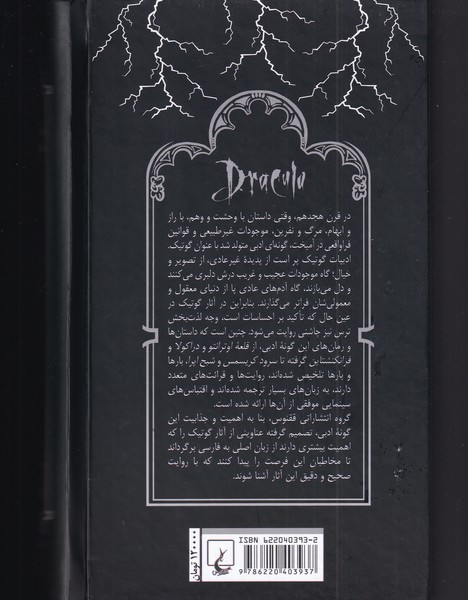 Dracula
در قرن هجدهم، وقتی داستان با وحشت و وهم، با راز
و ابهام، مرگ و نفرین، موجودات غیرطبیعی و قوانین
فراواقعی درآمیخت، گونه‌ای ادبی متولد شد با عنوان گوتیک.
ادبیات گوتیک پر است از پدیدهٔ غیرعادی، از تصویر و
خیال؛ گاه موجودات عجیب و غریب درش دلبری می‌کنند
و دل می‌بازند، گاه آدم‌های عادی پا از دنیای معقول و
معمولی‌شان فراتر می‌گذارند. بنابراین در آثار گوتیک در
عین حال که تأکید بر احساسات است، وجه لذت‌بخش
ترس نیز چاشنی روایت می‌شود. چنین است که داستان‌ها
و رمان‌های این گونهٔ ادبی، از قلعهٔ اوترانتو و دراکولا و
فرانکنشتاین گرفته تا سرود کریسمس و شبح اپرا، بارها
و بارها تلخیص شده‌اند، روایت‌ها و قرائت‌های متعدد
دارند، به زبان‌های بسیار ترجمه شده‌اند و اقتباس‌های
سینمایی موفقی از آن‌ها ارائه شده است.
گروه انتشاراتی ققنوس، بنا به اهمیت و جذابیت این
گونهٔ ادبی، تصمیم گرفته عناوینی از آثار گوتیک را که
اهمیت بیشتری دارند از زبان اصلی به فارسی برگرداند
تا مخاطبان این فرصت را پیدا کنند که با روایت
صحیح و دقیق این آثار آشنا شوند.
ISBN 622040393-2
9 786220 403937
۱۲۰۰۰۰ تومان